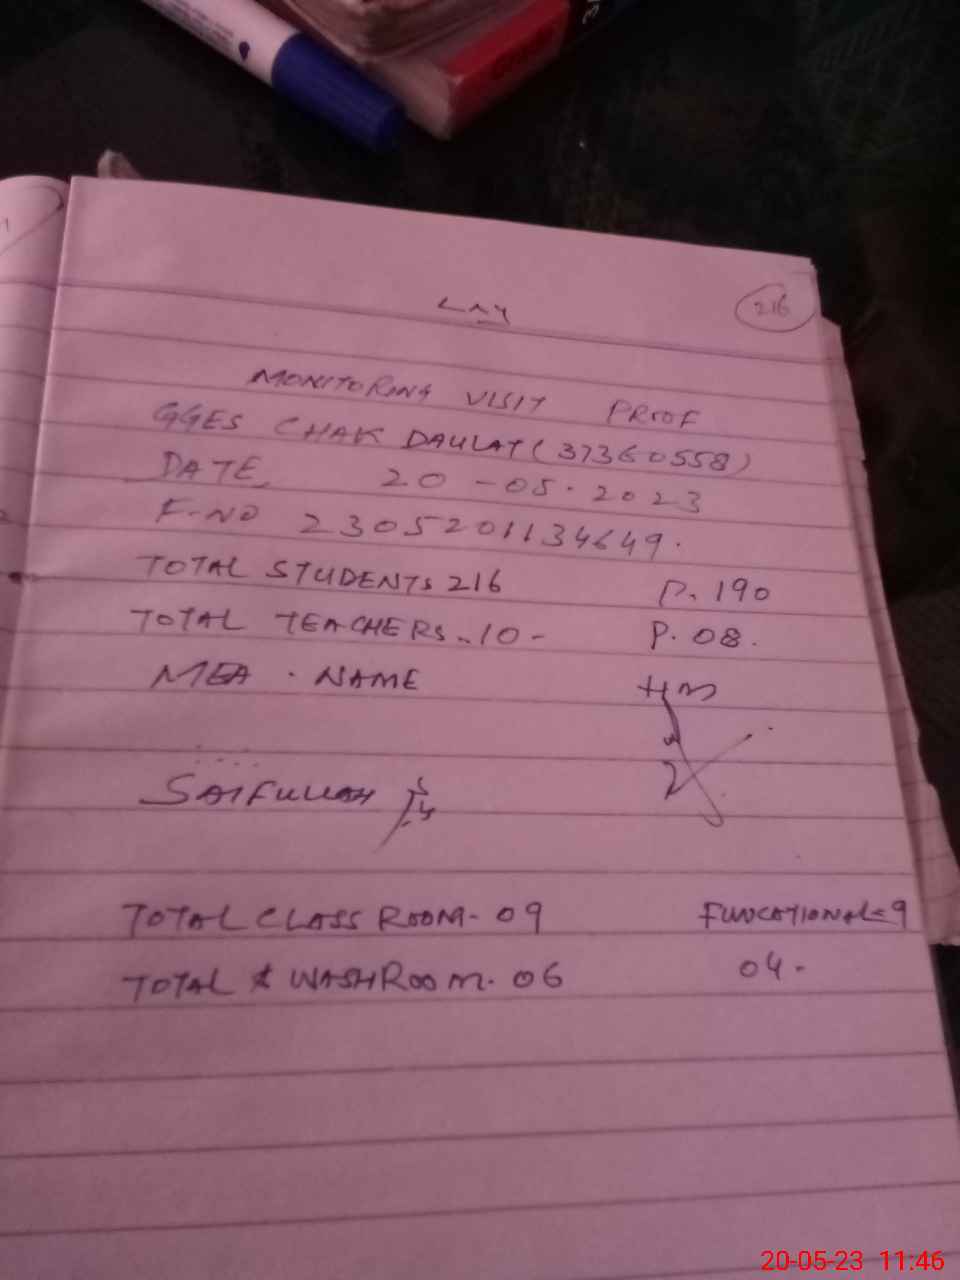 216
MONITORING VISIT PROOF
GGES CHAK DAULAT (37360558)
DATE 20-05-2023
F-NO 2305201134649.
TOTAL STUDENTS 216 P. 190
TOTAL TEACHERS. 10- P. 08.
MEA. NAME HM
SAIFULLAH
TOTAL CLASS ROOM- 09 FUNCATIONAL=9
TOTAL WASHROOM. 06 04-
20-05-23 11:46